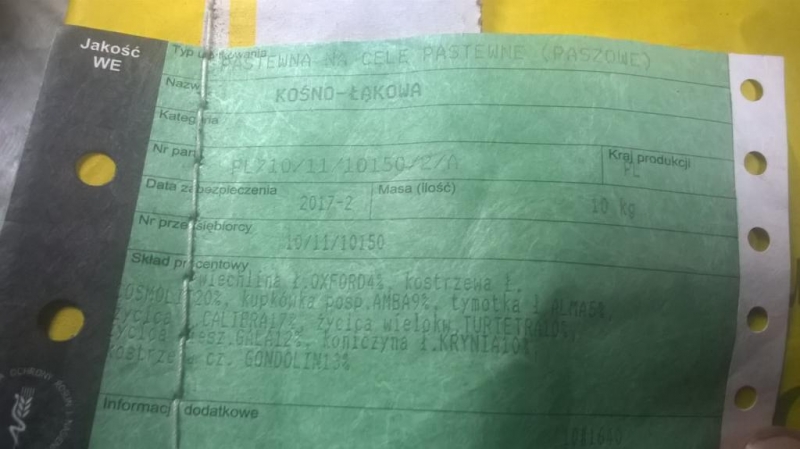 Jakość
WE
Typ użytkowania
PASTEWNA NA CELE PASTEWNE (PASZOWE)
Nazw
KOŚNO-ŁĄKOWA
Kateg ria
Nr par
PL/10/11/10150/2/A
Kraj produkcji
PL
Data zabezpieczenia
2017-2
Masa (ilość)
10 kg
Nr prze siębiorcy
10/11/10150
Skład procentowy
wiechlina ł.OXFORD4%, kostrzewa ł.
COSMOLIT20%, kupkówka posp.AMBA9%, tymotka ł.ALMA5%,
życica t.CALIERA17%, życica wielokw.TURTETRA10%,
życica miesz.GALA12%, koniczyna ł.KRYNIA10%,
kostrzewa cz. GONDOLIN13%
Informacj dodatkowe
1081640
OCHRONY ROŚLIN I